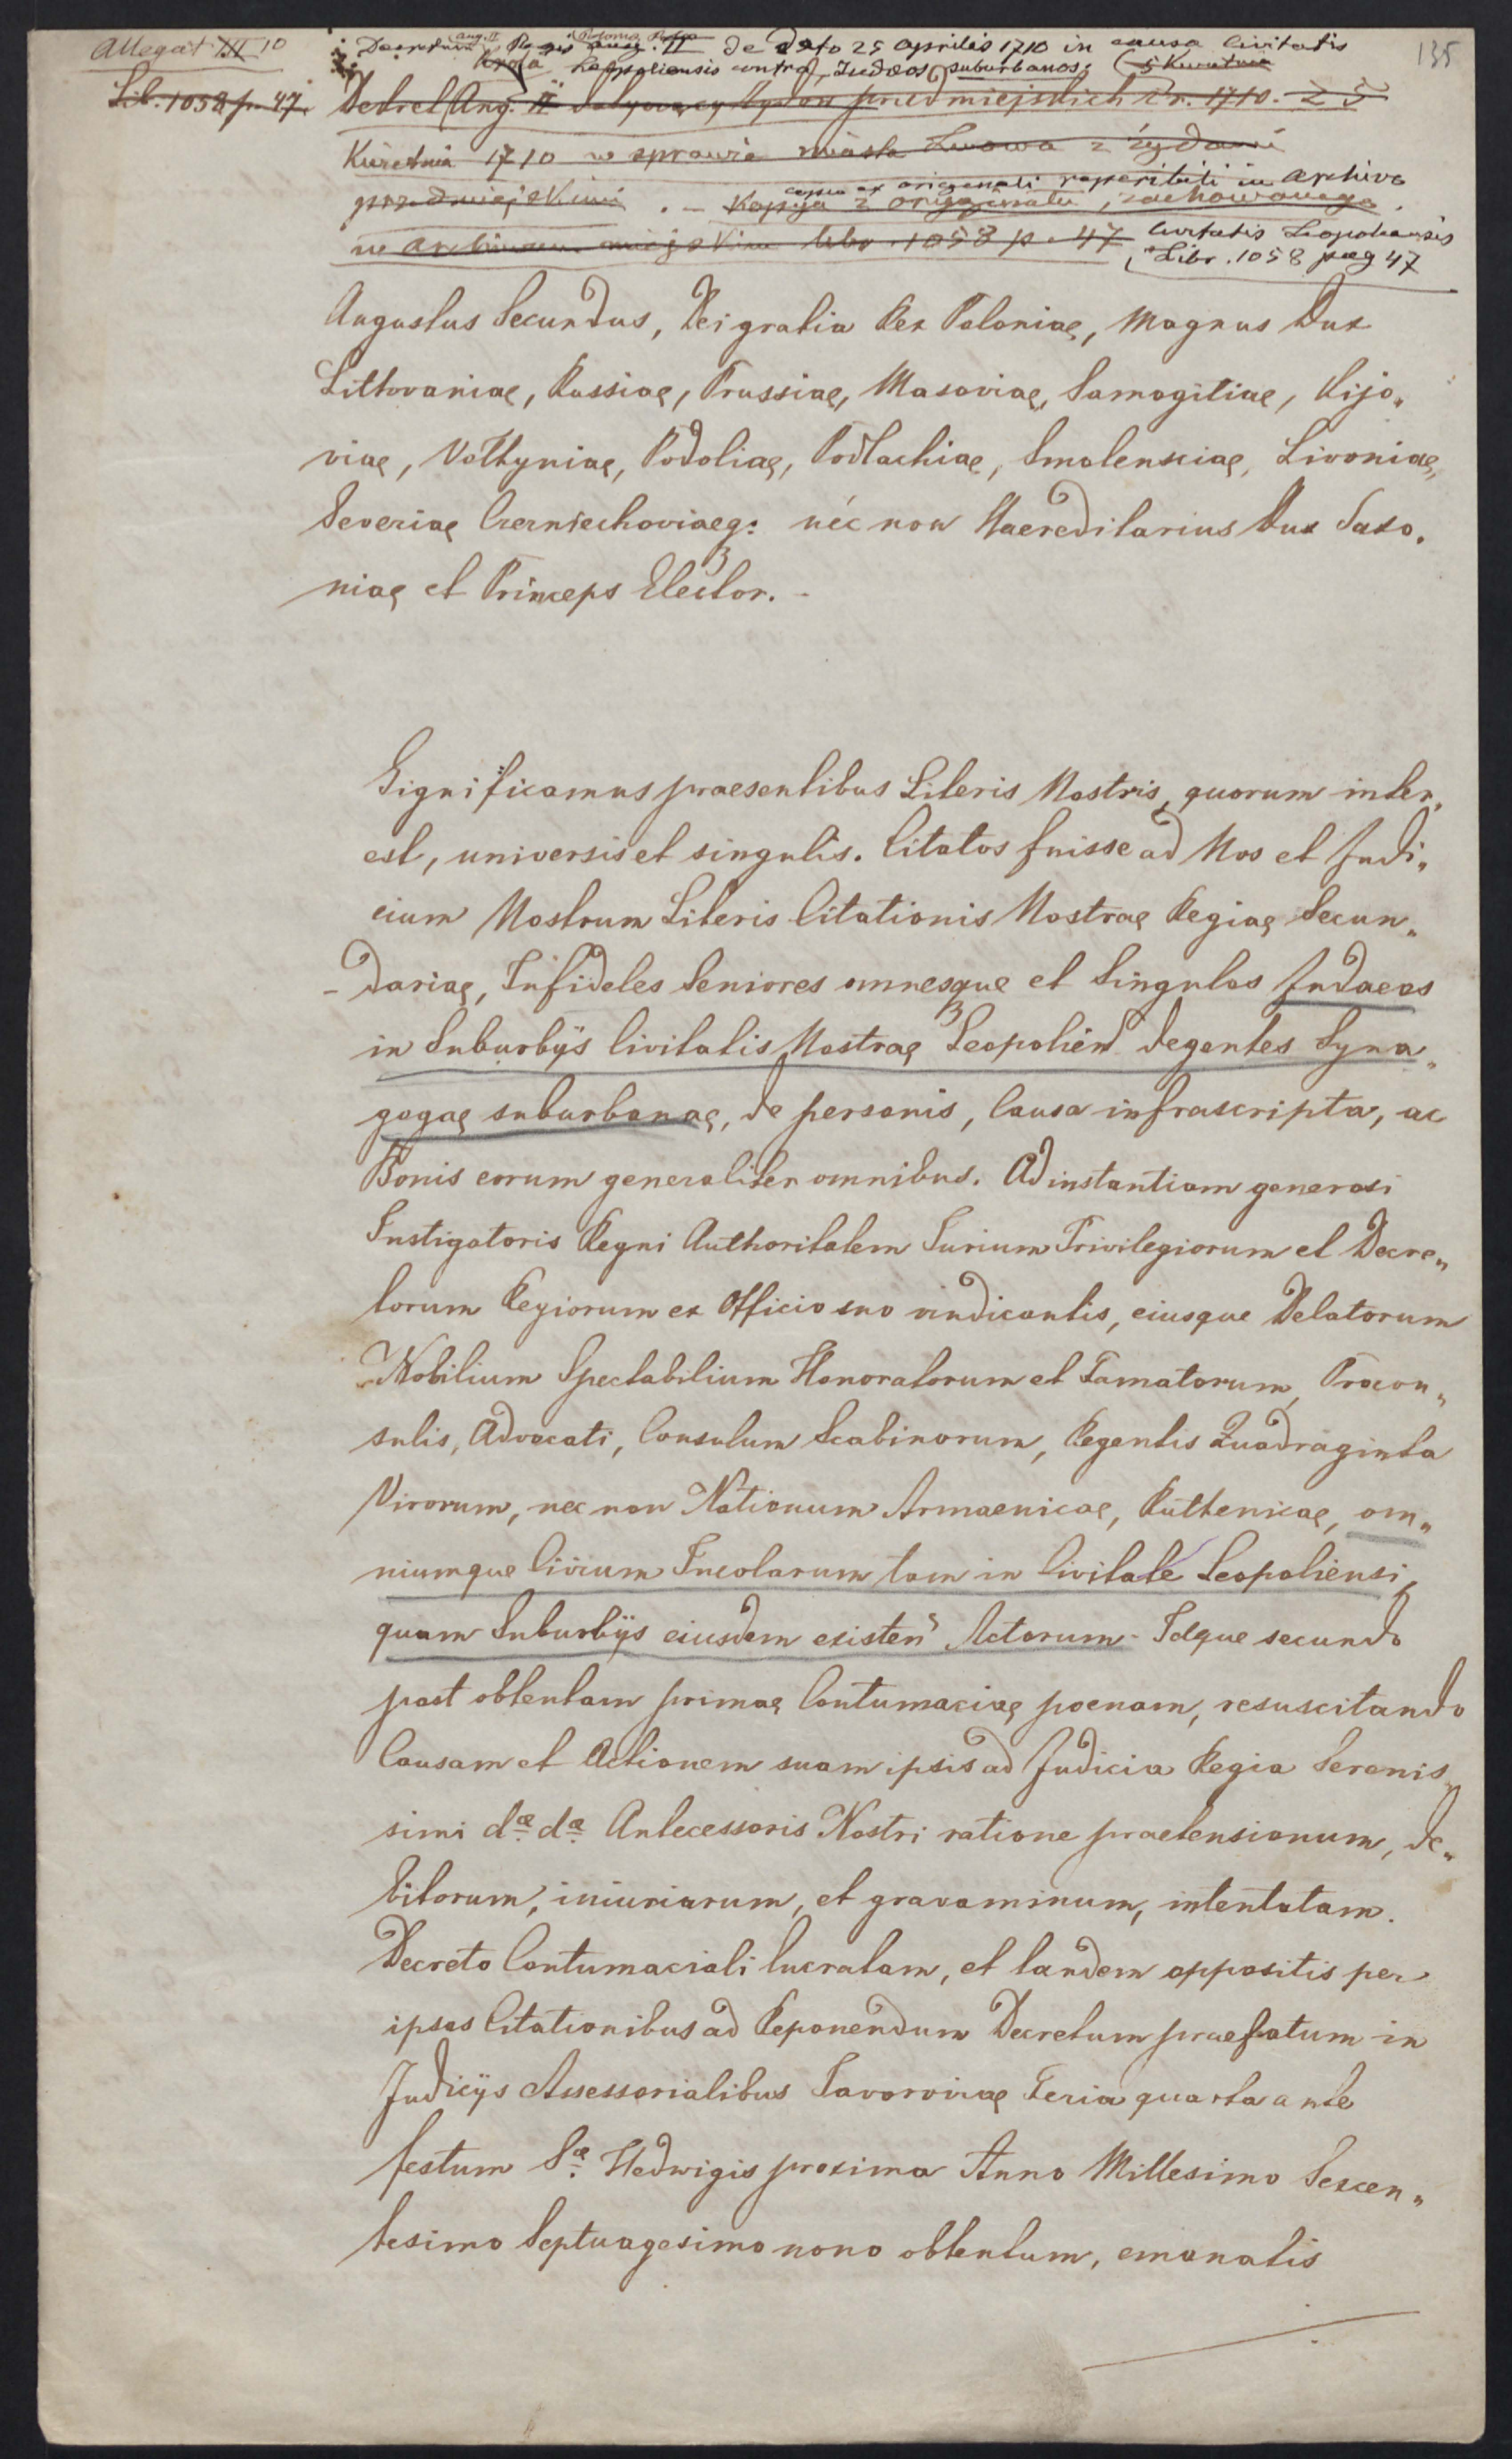 Allegat III 10
135
Decretum Aug. II Regis Poloniae de dato 25 Aprilis 1710 in causa Civitatis
Leopoliensis contra Judaeos suburbanos.
Lib. 1058 p. 47.
Dekret Aug. II dotyczący Żydów przedmiejskich Ar. 1710. 25
Kwietnia 1710 w sprawie miasta Lwowa z żydami
przedmiejskimi. – copia ex originali reperibili in Archivo
Kopja z oryginału, zachowanego
we Archiwum miejskim libr. 1058 p. 47 Civitatis Leopoliensis
Libr. 1058 pag 47
Augustus Secundus, Dei gratia Rex Poloniae, Magnus Dux
Littovaniae, Russiae, Prussiae, Masoviae, Samogitiae, Kijo„
viae, Volhyniae, Podoliae, Podlachiae, Smolensciae, Livoniae,
Severiae Czerniechoviaeq: nec non Haereditarius Dux Saxo„
niae et Princeps Elector. –
Significamus praesentibus Literis Nostris, quorum inter„
est, universis et singulis. Citatos fuisse ad Nos et Judi„
cium Nostrum Literis Citationis Nostrae Regiae Secun„
dariae, Infideles Seniores omnesque et Singulos Judaeos
in Suburbijs Civitatis Nostrae Leopolien degentes Syna„
gogae suburbanae, de personis, Causa infrascripta, ac
Bonis eorum generaliter omnibus. Ad instantiam generosi
Instigatoris Regni Authoritatem Iurium Privilegiorum et Decre„
torum Regiorum ex Officio suo vindicantis, eiusque Delatorum
Nobilium Spectabilium Honoratorum et Famatorum, Procon„
sulis, Advocati, Consulum Scabinorum, Regentis Quadraginta
Virorum, nec non Nationum Armaenicae, Ruthenicae, om„
niumque Civium Incolarum tam in Civitate Leopoliensi,
quam Suburbijs eiusdem existen Actorum – Idque secundo
post obtentam primae Contumaciae poenam, resuscitando
Causam et Actionem suam ipsis ad Judicia Regia Serenis„
simi dae dae Antecessoris Nostri ratione praetensionum, de„
bitorum, iniuriarum, et gravaminum, intentatam.
Decreto Contumaciali lucratam, et tandem oppositis per
ipsos Citationibus ad Reponendum Decretum praefatum in
Judicijs Assessorialibus Iavoroviae Feria quarta ante
festum Sae Hedwigis proxima Anno Millesimo Sexcen„
tesimo Septuagesimo nono obtentum, emanatis